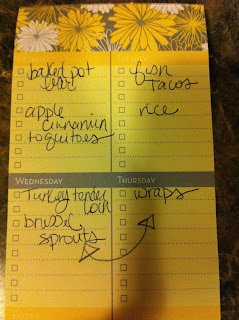 baked pot
apple
cinnamin
toquitoes
fish
Tacos
rice
WEDNESDAY
Turkey tender
loin
brussel
sprouts
THURSDAY
wraps